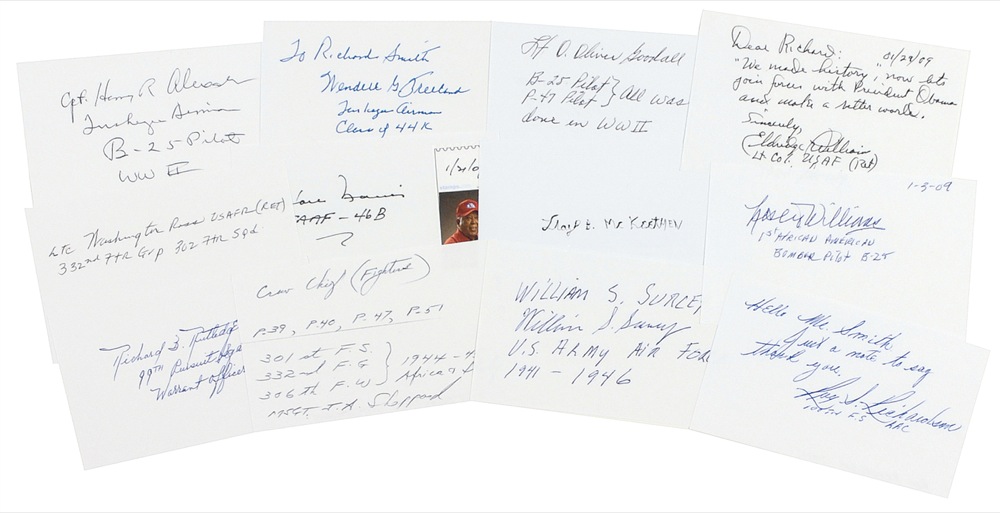 Cpt. Harry R.
Tuskegee Airman
B-25 Pilot
WW II
To Richard Smith
Wendell G. Freeland
Tuskegee Airman
Class of 44K
Lt O. Oliver Goodall
B-25 Pilot
P-47 Pilot } All was
done in WW II
Dear Richard: 01/29/09
"We made history", now lets
join forces with President Obama
and make a better world.
Sincerely,
Eldridge Williams
Lt Col. USAF (Ret)
LTC Washington Ross USAFR (RET)
332nd FTR Grp 302 FTR Sqd
- 46B
Floyd E. McKeethen
1-3-09
Williams
1st AFRICAN AMERICAN
BOMBER PILOT B-25
Richard B. Rutledge
99th Pursuit
Warrant officer
Crew Chief (Fighters)
P-39, P-40, P-47, P-51
301 st F.S.
332nd F.G } 1944 - 4
306th F.W
MSGT. J.A. Sheppard
WILLIAM S. SURCEY
William S. Surcey
U.S. ARMY AIR FOR
1941 - 1946
Hello Mr. Smith
Just a note to say
thank you.
Roy S. Richardson
AAC